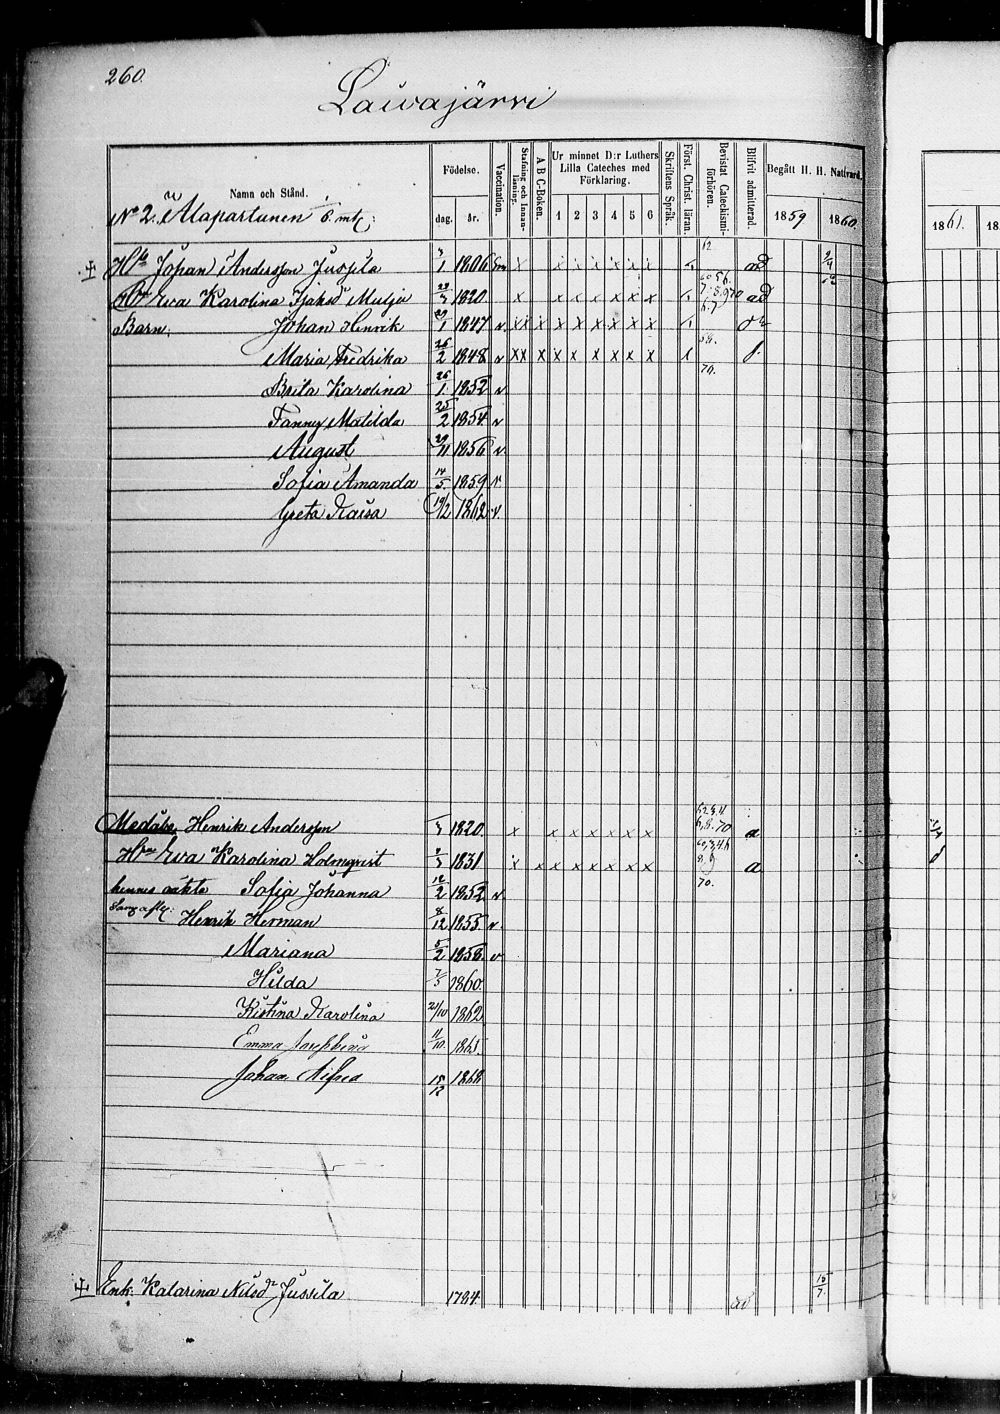 260.
Lauvajärvi
Namn och Stånd.
Födelse.
dag.
år.
Vaccination.
Stafning och Innanläsning.
A B C-Boken.
Ur minnet D:r Luthers Lilla Cateches med Förklaring.
1 2 3 4 5 6
Skriftens Språk.
Först. Christ. läran.
Bevistat Catechismiförhören.
Blifvit admitterad.
Begått H. H. Nattvard.
1859 1860
1861. 18
No 2. Mapartunen
Johan Andersson Jussila 1 1806 x x x x x x x ad
Eva Karolina Mulju 1820 x x x x x x x ad
Barn: Johan Henrik 29/1 1847 v. xx x x x x x x x
Maria Fredrika 26/2 1848 v xx x x x x x x x x
Brita Karolina 26/1 1852 v
Fanny Matilda 25/2 1854 v
August 29/11 1856 v.
Sofia Amanda 14/5 1859 v
Greta Kaisa 19/2 1862 v.
Henrik Andersson 1820. x x x x x x x a
Eva Karolina Holmqvist 1831 x x x x x x x a
hennes oäkta Sofia Johanna 12/2 1852 v.
Henrik Herman 8/12 1855. v.
Mariana 5/2 1858. v
Hilda 7/5 1860.
Kristina Karolina 21/10 1862
Emma 11/10. 1865.
Johan Alfred 15/12 1868
Enk. Katarina Nilsdr Jussila 1784. ad 15/7.